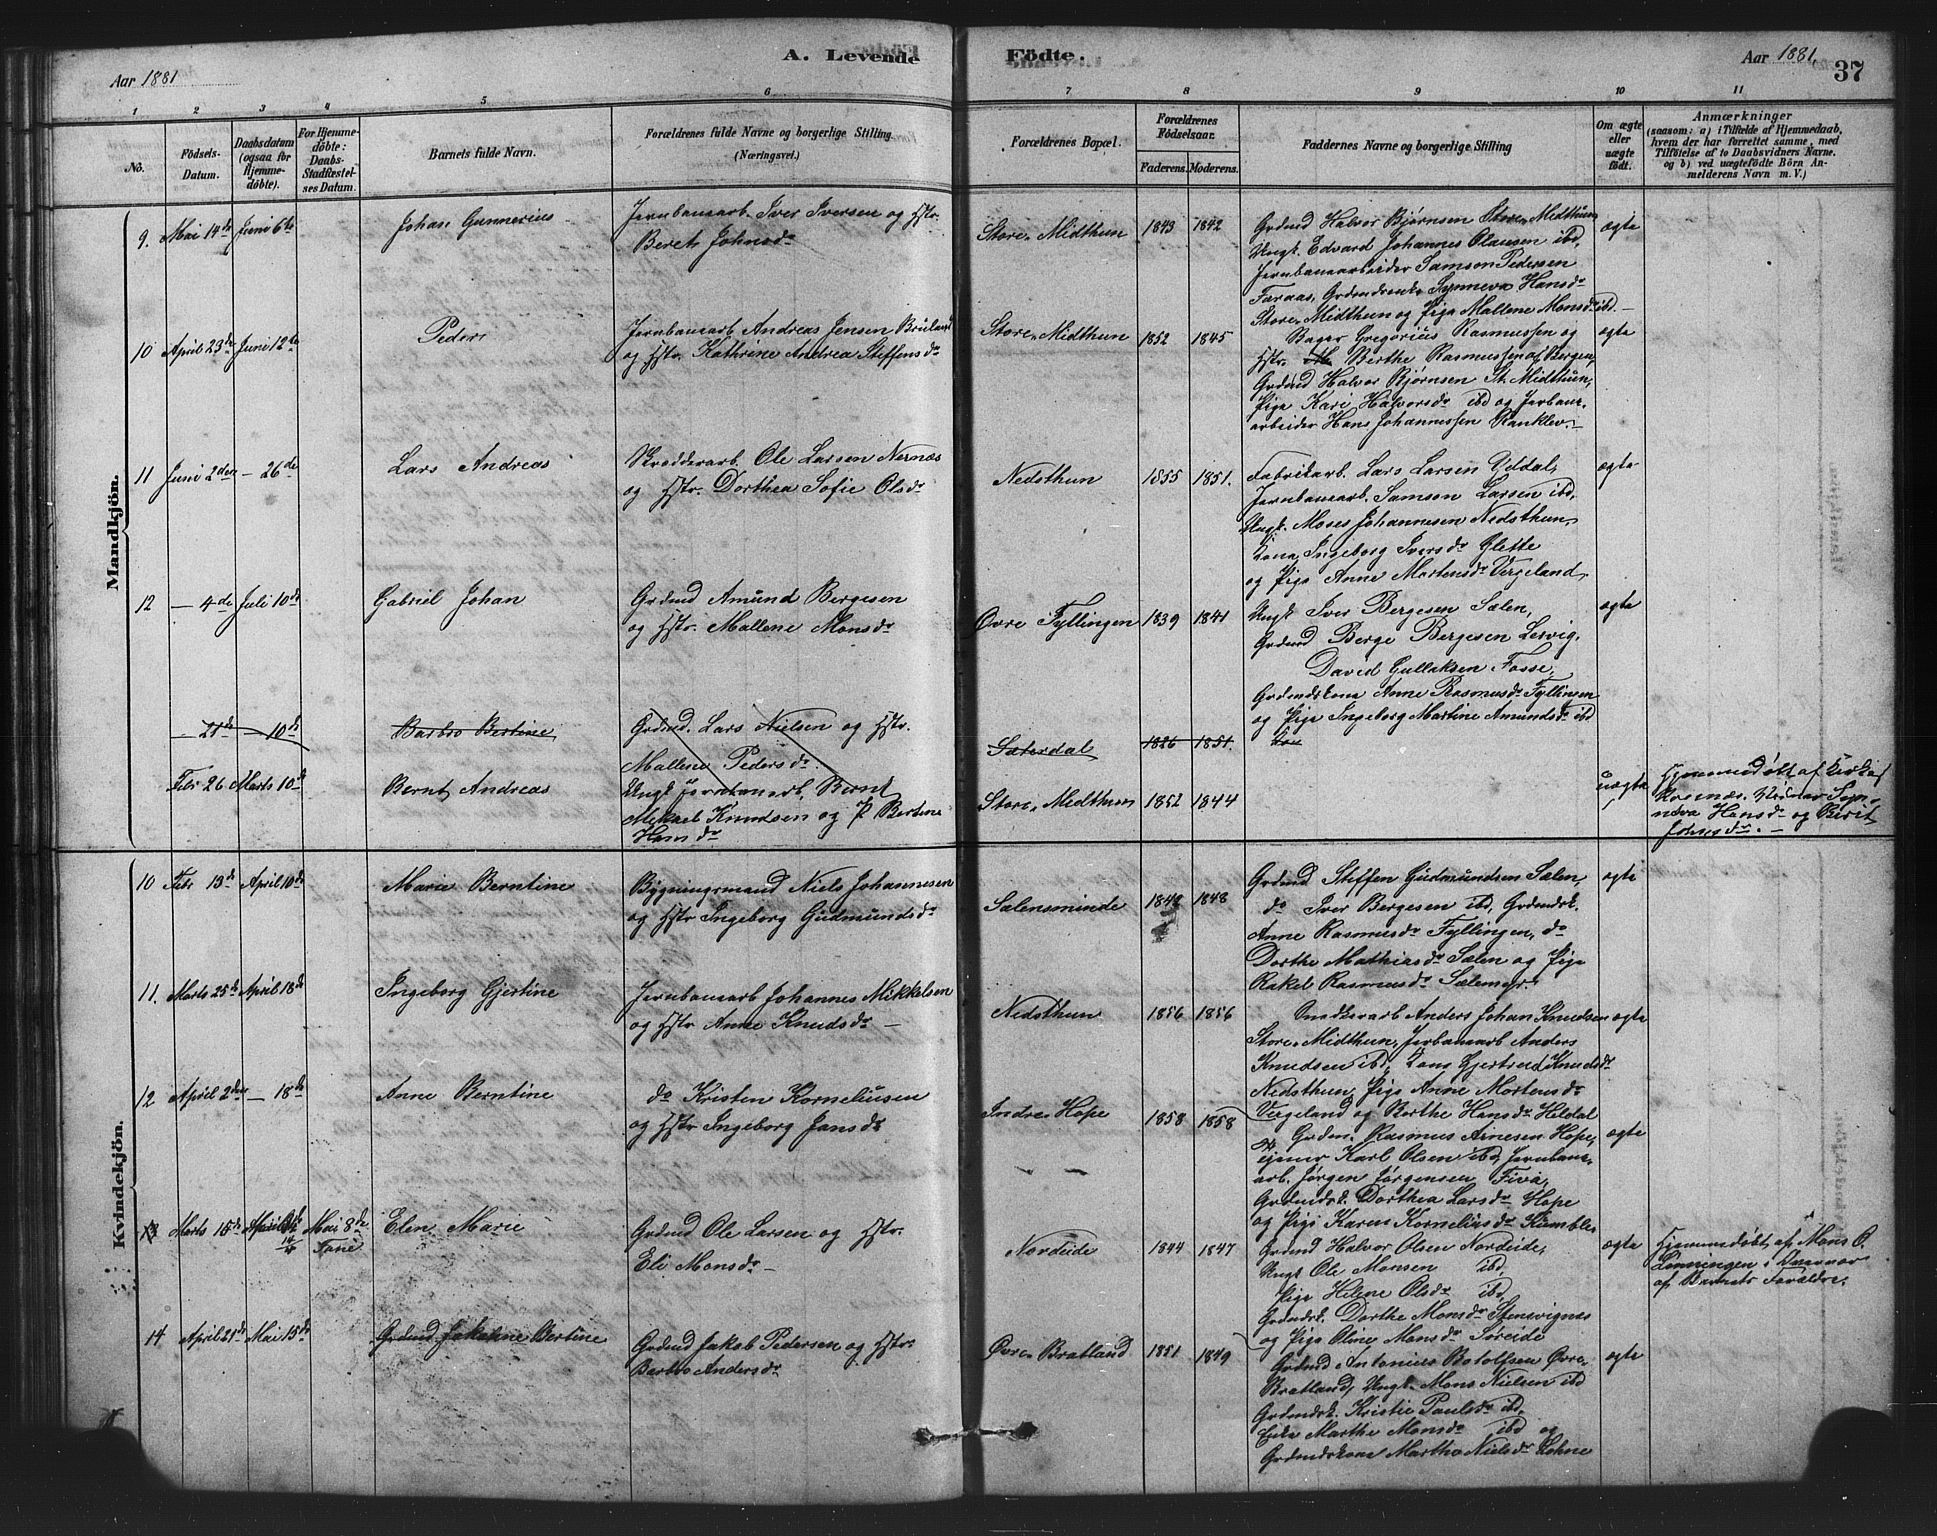 Aar 1881
A. Levende
Födte.
Aar 1881.
37
1 2 3 4 5 6 7 8 9 10 11
No.
Födsels-Datum.
Daabsdatum (ogsaa for Hjemme-døbte).
For Hjemme-döbte: Daabs-Stadfæstel-ses Datum.
Barnets fulde Navn.
Forældrenes fulde Navne og borgerlige Stilling. (Næringsvei.)
Forældrenes Bopæl.
Forældrenes Födselsaar.
Faderens. Moderens.
Faddernes Navne og borgerlige Stilling
Om ægte eller uægte födt.
Anmærkninger
(saasom: a) i Tilfælde af Hjemmedaab,
hvem der har forrettet samme, med
Tilföielse af to Daabsvidners Navne.
og b) ved uægtefödte Börn An-
melderens Navn m. V.)
Mandkjön.
9. Mai 14de Juni 6te
Johan Gunnerius
Jernbanearb. Iver Iversen og Hstr.
Beret Johnsdr
Store-Midthun
1843 1842
Grdmd Halvor Bjørnsen Store-Midthun
Ungk. Edvard Johannes Olausen ibd,
Jernbanearbeider Samson Pedersen
Faraas, Synneva Hansdr
Store-Midthun og Pige Mallene Monsdr ibd.
ægte
10 April 23de Juni 12te
Peder
Jernbanearb Andreas Jensen Bruland
og Hstr. Kathrine Andrea Steffensdr
Store-Midthun
1852 1845
Bager Gregorius Rasmussen og
Hstr. Berthe Rasmussen af Bergen,
Grdmd Halvor Bjørnsen St. Midthun,
Pige Kari Halvorsdr ibd og Jerbane-
arbeider Hans Johannessen Ranklev.
ægte
11 Juni 2den - 26de
Lars Andreas
Skredderarb. Ole Larsen Nernæs
og Hstr. Dorthea Sofie Olsdr
Nedsthun
1855 1851.
Fabrikarb. Lars Larsen Yddal,
Jernbanearb. Samson Larsen ibd,
Ungk. Moses Johannesen Nedsthun,
Kona Ingeborg Iversdr Glette
og Pige Anne Mortensdr Vergeland
ægte
12 - 4de Juli 10de
Gabriel Johan
Grdmd Amund Bergesen
og Hstr. Mallene Monsdr
Øvre Fyllingen
1839 1841
Ungk Iver Bergesen Sælen,
Grdmd Berge Bergesen Lervig,
David Gullaksen Fosse,
Grdmdskona Anne Rasmusdr Fyllingen
og Pige Ingeborg Martine Amundsdr ibd
ægte
- 21de - 10de
Barbro Bertine
Grdmd. Lars Nielsen og Hstr.
Mallene Pedersdr.
Sæterdal
1826 1851.
Febr 26 Marts 10de
Bernt Andreas
Ungk Jernbanearb. Bernt
Mikael Knudsen og P Bertine
Hansdr
Store-Midthun
1852 1844
uægte
Hjemmedøbt af
Syn-
neva Hansdr og Berit
Johnsdr.
Kvindekjön.
10 Febr 13de April 10de
Marie Berntine
Bygningsmand Niels Johannesen
og Hstr Ingeborg Gudmundsdr
Sælensminde
1848
Grdmd Steffen Gudmundsen Sælen,
do Iver Bergesen ibd, Grdmdsk.
Anne Rasmusdr Fyllingen, do
Dorthe Mathiasdr Sælen og Pige
Rakel Rasmusdr
ægte
11. Marts 25de April 18de
Ingeborg Gjertine
Jernbanearb Johannes Mikkelsen
og Hstr Anne Knudsdr
Nedsthun
1856 1856
Anders Johan Knudsen
Store-Midthun, Jerbanearb Anders
Knudsen ibd, Kona Gjertrud Knudsdr
Nedsthun, Pige Anne Mortensdr
Vergeland og Berthe Hansdr Hildal
ægte
12 April 2den - 18de
Anne Berntine
do Kristen Korneliusen
og Hstr Ingeborg Jansdr
Indre-Hope
1858 1858
Grdm. Rasmus Arnesen Hope,
Karl Olsen ibd, Jernbane-
arb. Jørgen Jørgensen Fivia,
Grdmdsk. Dorthea Larsdr Hope
og Pige Karen Korneliusdr Kumble
ægte
13 Marts 15de April Mai 8de
Fane
Elen Marie
Grdmd Ole Larsen og Hstr.
Eli Monsdr
Nordeide
1844 1847
Grdmd Halvor Olsen Nordeide,
Ungk Ole Monsen ibd,
Pige Helene Olsdr ibd,
Grdmdsk. Dorthe Monsdr Stensvignæs
og Pige Oline Monsdr Søreide
ægte
Hjemmedøbt af Mons O.
Lønningen i Nærvær
af Barnets Forældre.
14 April 21de Mai 15de
Grdmd Jakobine Bertine
Grdmd Jakob Pedersen og Hstr.
Barbro Andersdr
Øvre-Bratland
1851 1849
Grdmd Antonius Botolfsen Øvre-
Bratland, Ungk. Mons Nielsen ibd
Grdmdsk. Kristie Paulsdr ibd,
Enke Marthe Monsdr ibd og
Grdmdskona Martha Nielsdr Lohne
ægte